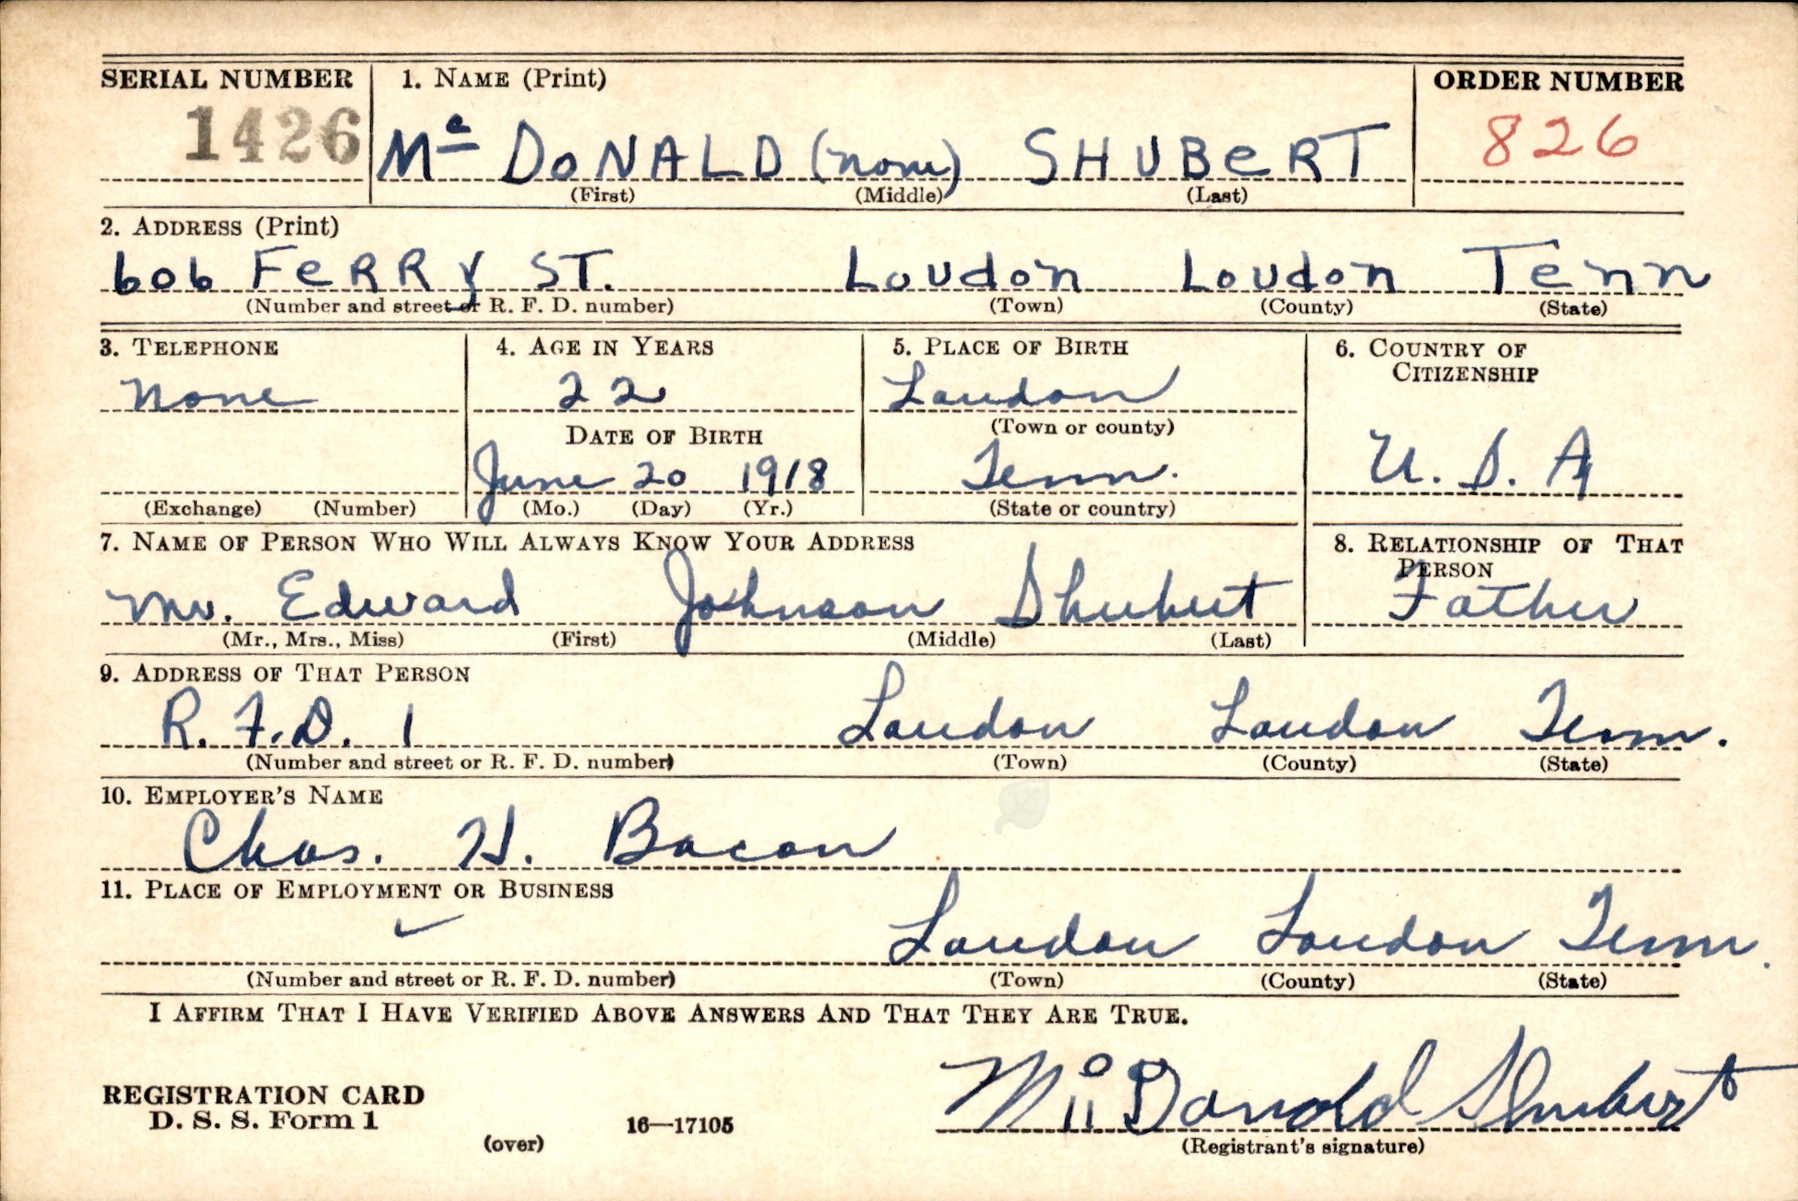 SERIAL NUMBER 1. NAME (Print) ORDER NUMBER
1426 Mc DONALD (none) SHUBeRT 826
(First) (Middle) (Last)
2. ADDRESS (Print)
606 FeRRy ST. Loudon Loudon Tenn
(Number and street or R. F. D. number) (Town) (County) (State)
3. TELEPHONE 4. AGE IN YEARS 5. PLACE OF BIRTH 6. COUNTRY OF CITIZENSHIP
None 22 Loudon
(Town or county)
DATE OF BIRTH
June 20 1918 Tenn. U. S. A
(Exchange) (Number) (Mo.) (Day) (Yr.) (State or country)
7. NAME OF PERSON WHO WILL ALWAYS KNOW YOUR ADDRESS 8. RELATIONSHIP OF THAT PERSON
Mr. Edward Johnson Shubert Father
(Mr., Mrs., Miss) (First) (Middle) (Last)
9. ADDRESS OF THAT PERSON
R. F. D. 1 Loudon Loudon Tenn.
(Number and street or R. F. D. number) (Town) (County) (State)
10. EMPLOYER'S NAME
Chas. H. Bacon
11. PLACE OF EMPLOYMENT OR BUSINESS
Loudon Loudon Tenn.
(Number and street or R. F. D. number) (Town) (County) (State)
I AFFIRM THAT I HAVE VERIFIED ABOVE ANSWERS AND THAT THEY ARE TRUE.
Mc Donald Shubert
REGISTRATION CARD
D. S. S. Form 1 16—17105
(over) (Registrant's signature)